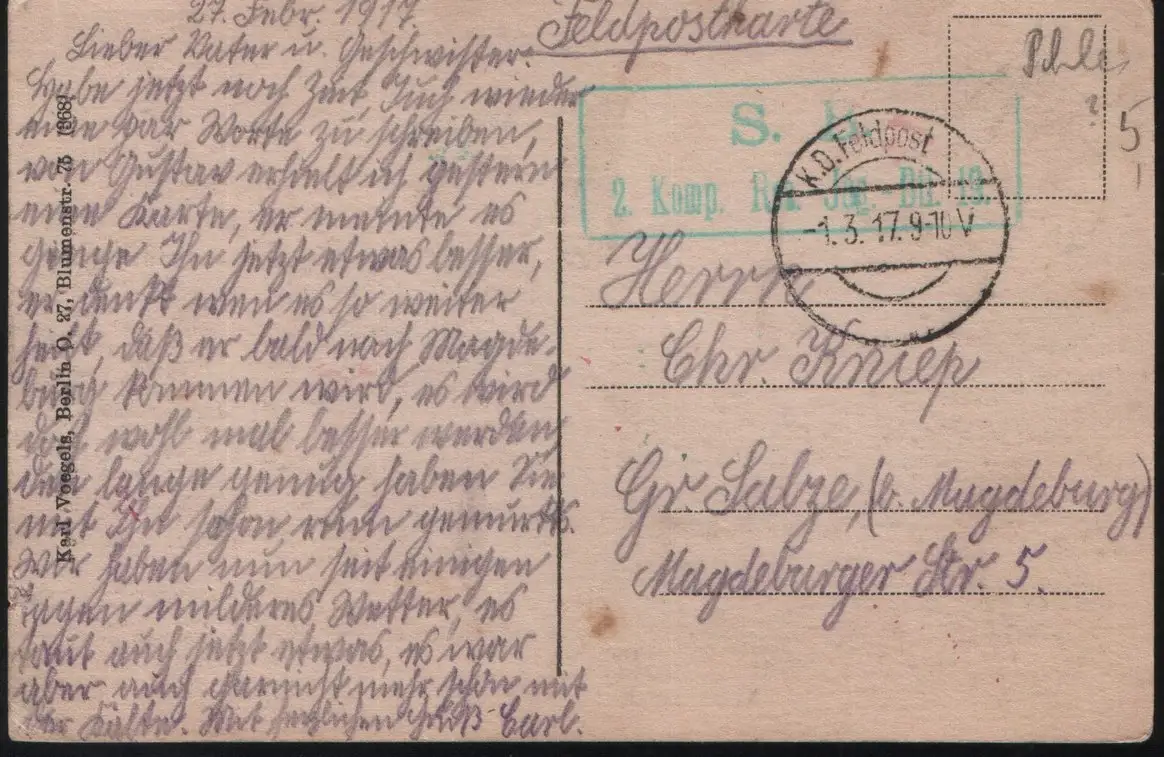 27. Febr. 1917.
Lieber Vater u. Geschwister.
Habe jetzt noch Zeit, Euch wieder
eine par Worte zu schreiben,
von Gustav erhielt ich gestern
eine Karte, er meinte es
ginge Ihn jetzt etwas besser,
er denkt wen es so weiter
geht, daß er bald nach Magde-
burg kommen wird, es wird
doch wohl mal besser werden
den lange genug haben Sie
mit Ihn schon rum gemurkst.
Wir haben nun seit einigen
Tagen milderes Wetter, es
taut auch jetzt etwas, es war
aber auch garnicht mehr schön mit
der Kälte. Mit herzlichen Gruß Carl.
Karl Voegels, Berlin O. 27, Blumenstr. 75
Feldpostkarte
S. B.
2. Komp. Res. Jäg. Btl. 19.
K.D. Feldpost
-1.3.17.9-10 V
5
Herrn
Chr. Kniep
Gr. Salze, (b. Magdeburg)
Magdeburger Str. 5.